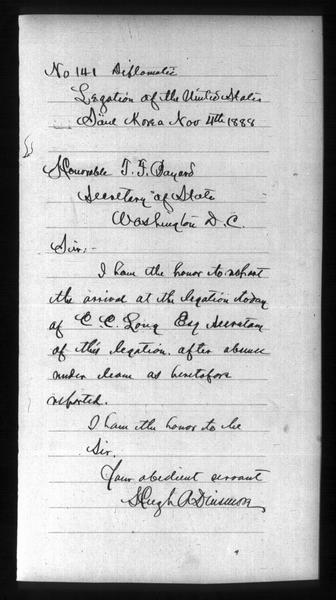 No 141 Diplomatic
Legation of the United States
Söul Korea Nov 4th 1888
Honorable T. F. Bayard
Secretary of State
Washington D.C.
Sir:-
I have the honor to report
the arrival at the legation today
of C. C. Long Esq Secretary
of this legation after absence
under leave as heretofore
reported.
I have the honor to be
Sir.
Your obedient servant
Hugh A Dinsmore